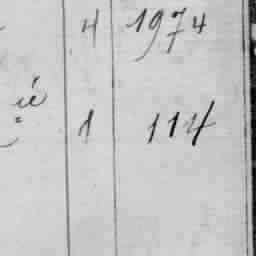 4 1974
ié
1 114